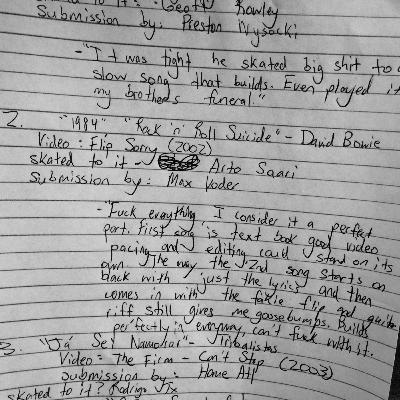 skated to it? : Geoff Rowley
Submission by: Preston Wysocki
- "It was tight he skated big shit to a
slow song that builds. Even played it
my brothers funeral."
2. "1984" "Rock 'n' Roll Suicide" - David Bowie
Video: Flip Sorry (2002)
skated to it - Arto Saari
Submission by: Max Yoder
- "Fuck everything I consider it a perfect
part. First song is text book good video
pacing and editing could stand on its
own. The way the 2nd song starts on
black with just the lyrics and then
comes in with the fakie flip and guitar
riff still gives me goosebumps. Builds
perfectly in everyway, can't fuck with it.
3. "Já Sei Namorar" - Tribalistas
Video: The Firm - Can't Stop (2003)
Submission by: Home Ali
skated to it? Rodrigo Tx